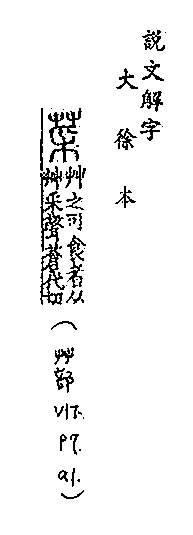 説文解字
大徐本
菜
艸之可食者从
艸采聲蒼代切
(艸部 V1下. P7. a1.)